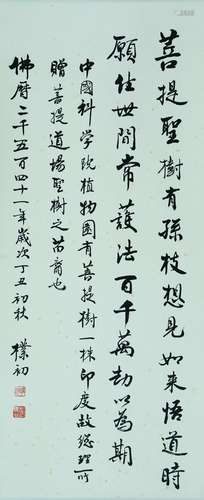 菩提聖樹有孫枝想見如来悟道時
願住世間常護法百千萬劫以為期
中國科学院植物園有菩提樹一株印度故總理所
贈菩提道場聖樹之苗裔也
佛曆二千五百四十一年歲次丁丑初秋
樸初